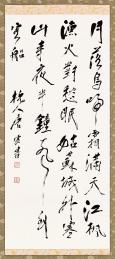 月落烏啼霜滿天江楓
漁火對愁眠姑蘇城外寒
山寺夜半鐘聲到
客船